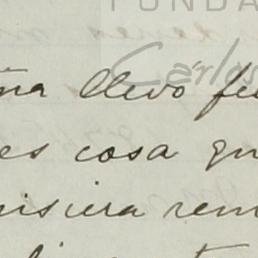 FUNDA
Carlos
ña llevo fe
es cosa qu
uisiera rem